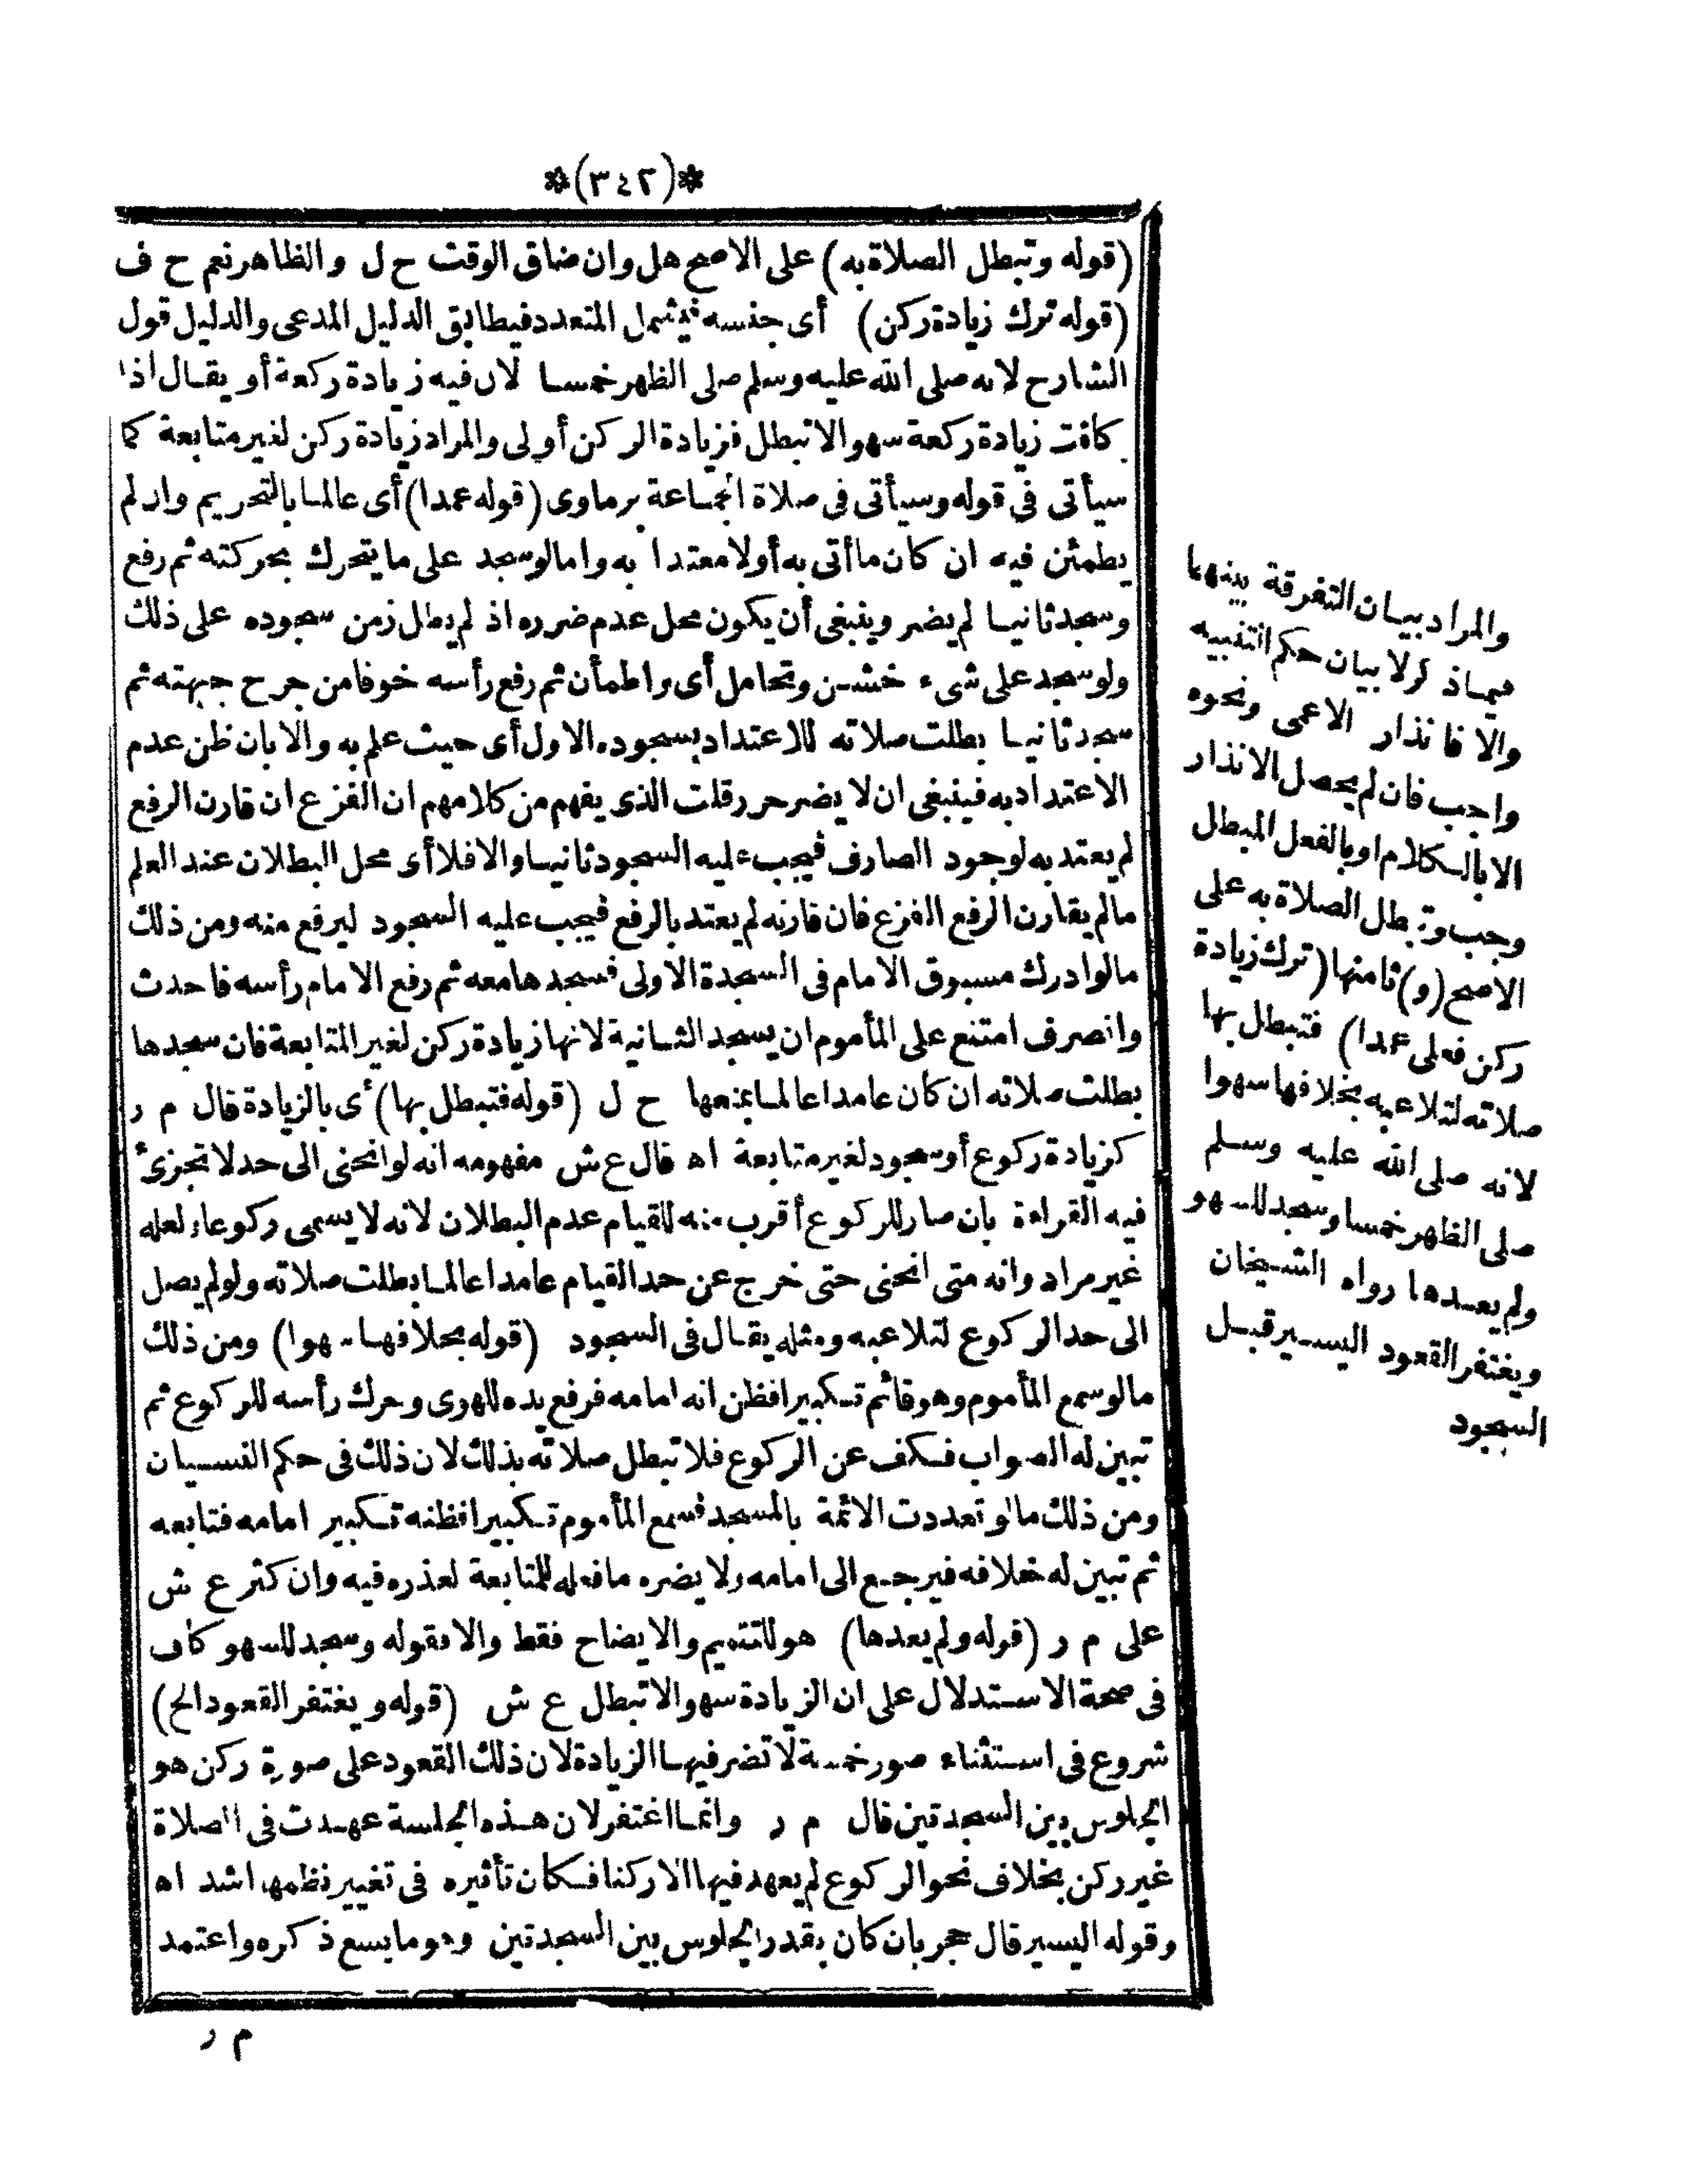 *(٣٤٢)*
(قوله وتبطل الصلاة به) على الاصح هل وان ضاق الوقت ح ل والظاهر نعم ح ف
(قوله ترك زيادة ركن) أى جنسه فيشمل المتعدد فيطابق الدليل المدعى والدليل قول
الشارح لانه صلى الله عليه وسلم صلى الظهر خمسا لان فيه زيادة ركعة أو يقال اذا
كانت زيادة ركعة سهوا لا تبطل فزيادة الركن أولى والمراد زيادة ركن لغير متابعة كما
سيأتى فى قوله وسيأتى فى صلاة الجماعة برماوى (قوله عمدا) أى عالما بالتحريم وان لم
يطمئن فيه ان كان ما أتى به أولا معتدا به واما لو سجد على ما يتحرك بحركته ثم رفع
وسجد ثانيا لم يضر وينبغى أن يكون محل عدم ضرره اذ لم يطل زمن سجوده على ذلك
ولو سجد على شىء خشن وتحامل أى واطمأن ثم رفع رأسه خوفا من جرح جبهته ثم
سجد ثانيا بطلت صلاته للاعتداد بسجوده الاول أى حيث علم به والا بان ظن عدم
الاعتداد به فينبغى ان لا يضر حرر قلت الذى يفهم من كلامهم ان الفزع ان قارن الرفع
لم يعتد به لوجود الصارف فيجب عليه السجود ثانيا والا فلا أى محل البطلان عند العلم
مالم يقارن الرفع الفزع فان قارنه لم يعتد بالرفع فيجب عليه السجود ليرفع منه ومن ذلك
مالو ادرك مسبوق الامام فى السجدة الاولى فسجدها معه ثم رفع الامام رأسه فاحدث
وانصرف امتنع على المأموم ان يسجد الثانية لانها زيادة ركن لغير المتابعة فان سجدها
بطلت صلاته ان كان عامدا عالما بمنعها ح ل (قوله فتبطل بها) أى بالزيادة قال م ر
كزيادة ركوع أو سجود لغير متابعة اه قال ع ش مفهومه انه لو انحنى الى حد لا تجزئ
فيه القراءة بان صار للركوع أقرب منه للقيام عدم البطلان لانه لا يسمى ركوعا ولعله
غير مراد وانه متى انحنى حتى خرج عن حد القيام عامدا عالما بطلت صلاته ولو لم يصل
الى حد الركوع لتلاعبه ومثله يقال فى السجود (قوله بخلافها سهوا) ومن ذلك
مالو سمع المأموم وهو قائم تكبيرا فظن انه امامه فرفع يده للهوى وحرك رأسه للركوع ثم
تبين له الصواب فكف عن الركوع فلا تبطل صلاته بذلك لان ذلك فى حكم النسيان
ومن ذلك مالو تعددت الائمة بالمسجد فسمع المأموم تكبيرا فظنه تكبير امامه فتابعه
ثم تبين له خلافه فيرجع الى امامه ولا يضره ما فعله للمتابعة لعذره فيه وان كثر ع ش
على م ر (قوله ولم يعدها) هو للتتميم والايضاح فقط والا فقوله وسجد للسهو كاف
فى صحة الاستدلال على ان الزيادة سهوا لا تبطل ع ش (قوله ويغتفر القعود الخ)
شروع فى استثناء صور خمسة لا تضر فيها الزيادة لان ذلك القعود على صورة ركن هو
الجلوس بين السجدتين قال م ر وانما اغتفر لان هذه الجلسة عهدت فى الصلاة
غير ركن بخلاف نحو الركوع لم يعهد فيها الا ركنا فكان تأثيره فى تغيير نظمها اشد اه
وقوله اليسير قال حجر بان كان بقدر الجلوس بين السجدتين وهو ما يسع ذكره واعتمد
م ر
والمراد بيان التفرقة بينهما
فيما ذكر لا بيان حكم التنبيه
والا فانذار الاعمى ونحوه
واجب فان لم يحصل الانذار
الا بالكلام او بالفعل المبطل
وجب وتبطل الصلاة به على
الاصح (و) ثامنها (ترك زيادة
ركن فعلى عمدا) فتبطل بها
صلاته لتلاعبه بخلافها سهوا
لانه صلى الله عليه وسلم
صلى الظهر خمسا وسجد للسهو
ولم يعدها رواه الشيخان
ويغتفر القعود اليسير قبل
السجود